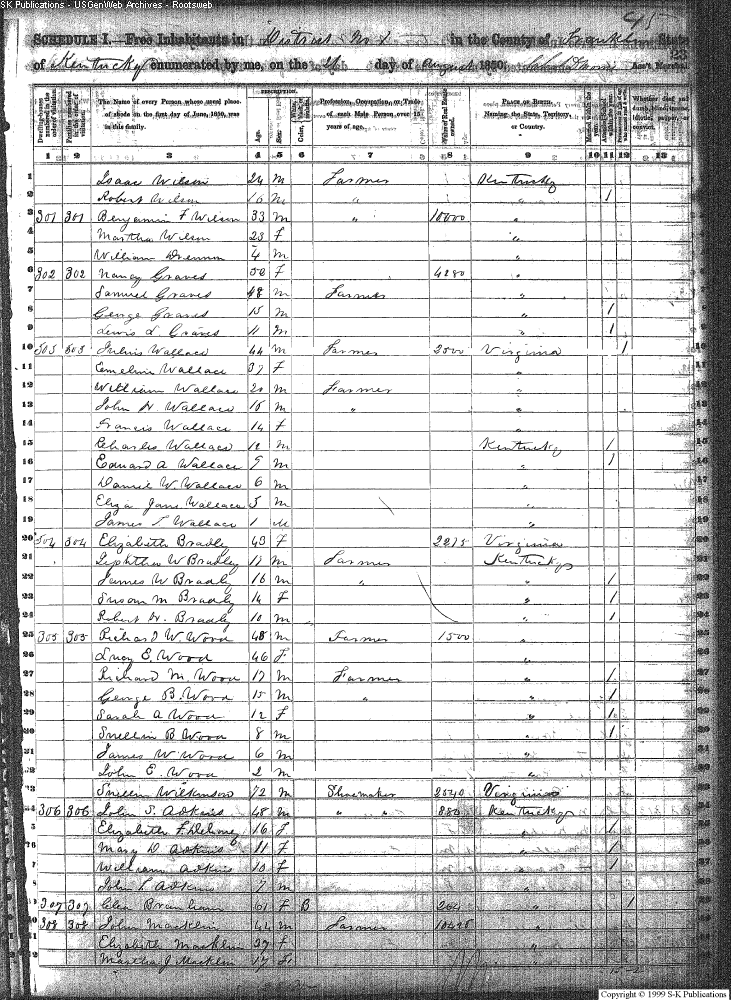 S-K Publications - USGenWeb Archives - Rootsweb
45
SCHEDULE I.—Free Inhabitants in District No 2 in the County of Franklin State
of Kentucky enumerated by me, on the day of August 1850. Ass't Marshal.
Dwelling-houses numbered in the order of visitation.
Families numbered in the order of visitation.
The Name of every Person whose usual place of abode on the first day of June, 1850, was in this family.
DESCRIPTION.
Age.
Sex.
Profession, Occupation, or Trade of each Male Person over 15 years of age.
Value of Real Estate owned.
PLACE OF BIRTH. Naming the State, Territory, or Country.
Whether deaf and dumb, blind, insane, idiotic, pauper, or convict.
1 2 3 4 5 6 7 8 9 10 11 12 13
1 Isaac Wilson 24 M Farmer Kentucky
2 Robert Wilson 16 M " " 1
3 301 301 Benjamin F Wilson 33 M " 10000 "
4 Martha Wilson 23 F "
5 William Drennon 4 M "
6 302 302 Nancy Graves 50 F 4280 "
7 Samuel Graves 48 M Farmer "
8 George Graves 15 M " 1
9 Lewis L Graves 11 M " 1
10 303 303 Julius Wallace 44 M Farmer 2500 Virginia 1
11 Emeline Wallace 37 F "
12 William Wallace 20 M Farmer "
13 John H. Wallace 15 M " "
14 Francis Wallace 14 F "
15 Charles Wallace 12 M Kentucky 1
16 Edward A Wallace 9 M " 1
17 Daniel W Wallace 6 M "
18 Eliza Jane Wallace 3 M "
19 James T Wallace 1 M "
20 304 304 Elizabeth Bradly 43 F 2215 Virginia
21 W Bradley 17 M Farmer Kentucky
22 James W Bradly 16 M " " 1
23 Susan M Bradly 14 F " 1
24 Robert H. Bradly 10 M " 1
25 305 305 Richard W Wood 48 M Farmer 1500 "
26 Lucy E. Wood 46 F "
27 Richard M. Wood 17 M Farmer " 1
28 George B. Wood 15 M " " 1
29 Sarah A Wood 12 F " 1
30 Snellin B Wood 8 M " 1
31 James W Wood 6 M "
32 John E. Wood 2 M "
33 Snellin Wilkinson 72 M Shoemaker 2040 Virginia
34 306 306 John S. Adkins 48 M " " 880 Kentucky
35 Elizabeth F. 16 F " 1
36 Mary D Adkins 11 F " 1
37 William Adkins 10 F " 1
38 John L Adkins 7 M "
39 307 307 Branham 61 F B 264 " 1
40 308 308 John Macklin 44 M Farmer "
41 Elizabeth Macklin 37 F "
42 Martha J Macklin 17 F "
Copyright © 1999 S-K Publications